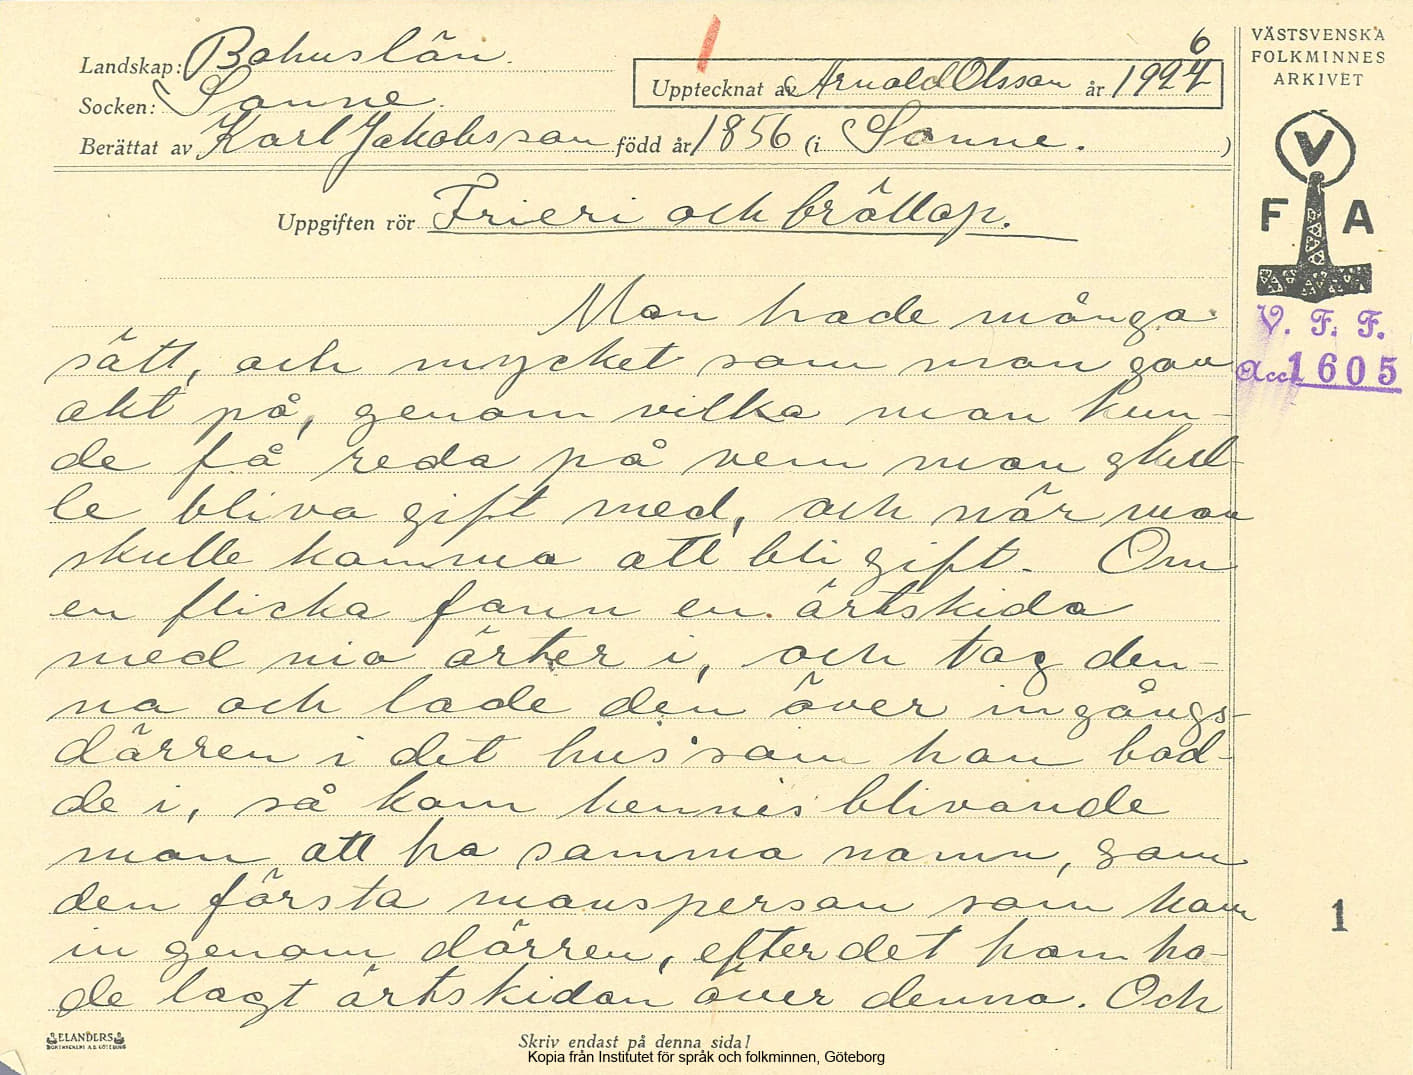 VÄSTSVENSKA
FOLKMINNES
ARKIVET
Landskap: Bohuslän.
Socken: Sanne.
6
Upptecknat av Arnold Olsson år 1924
Berättat av Karl Jakobsson född år 1856 (i Sanne. )
Uppgiften rör Frieri och bröllop.
V
F A
V. F. F.
Acc 1605
Man hade många
sätt, och mycket som man gav
akt på, genom vilka man kun-
de få reda på vem man skul-
le bliva gift med, och när man
skulle komma att bli gift. Om
en flicka fann en ärtskida
med nio ärter i, och tog den-
na och lade den över ingångs-
dörren i det hus som hon bod-
de i, så kom hennes blivande
man att ha samma namn, som
den första mansperson som kom
in genom dörren, efter det hon ha-
de lagt ärtskidan över denna. Och
1
ELANDERS
BOKTRYCKERI A.B. GÖTEBORG
Skriv endast på denna sida!
Kopia från Institutet för språk och folkminnen, Göteborg